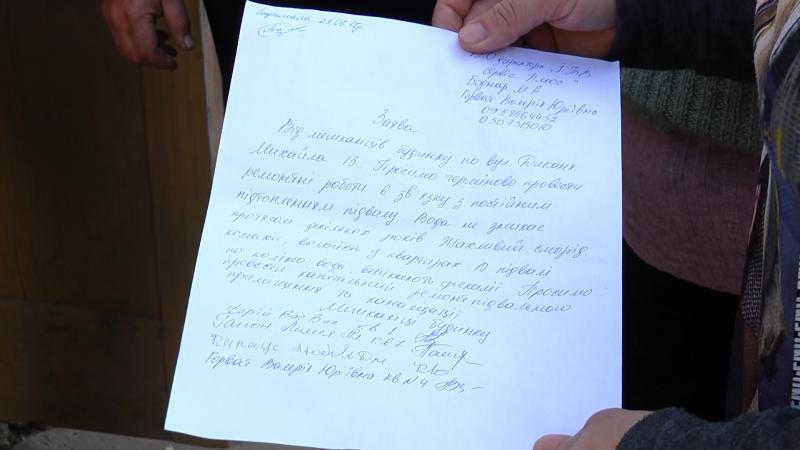 23.06.
директору "
Сервіс Плюс"
Боднар М А
Горват Валерія Юріївна
0507315010
Заява
Від мешканців будинку по вул Дикона
Михайла 13. Просимо терміново провести
ремонтні роботи в зв'язку з постійним
підтопленням підвалу. Вода не зникає
протягом декількох років Жахливий сморід.
комахи, вологість у квартирах В підвалі
по коліно води, фекалії Просимо
провести капітальний ремонт підвального
приміщення та каналізації
Мешканці будинку
кв 1
Ганон кв 7
Любов
Горват Валерія Юріївна кв N4